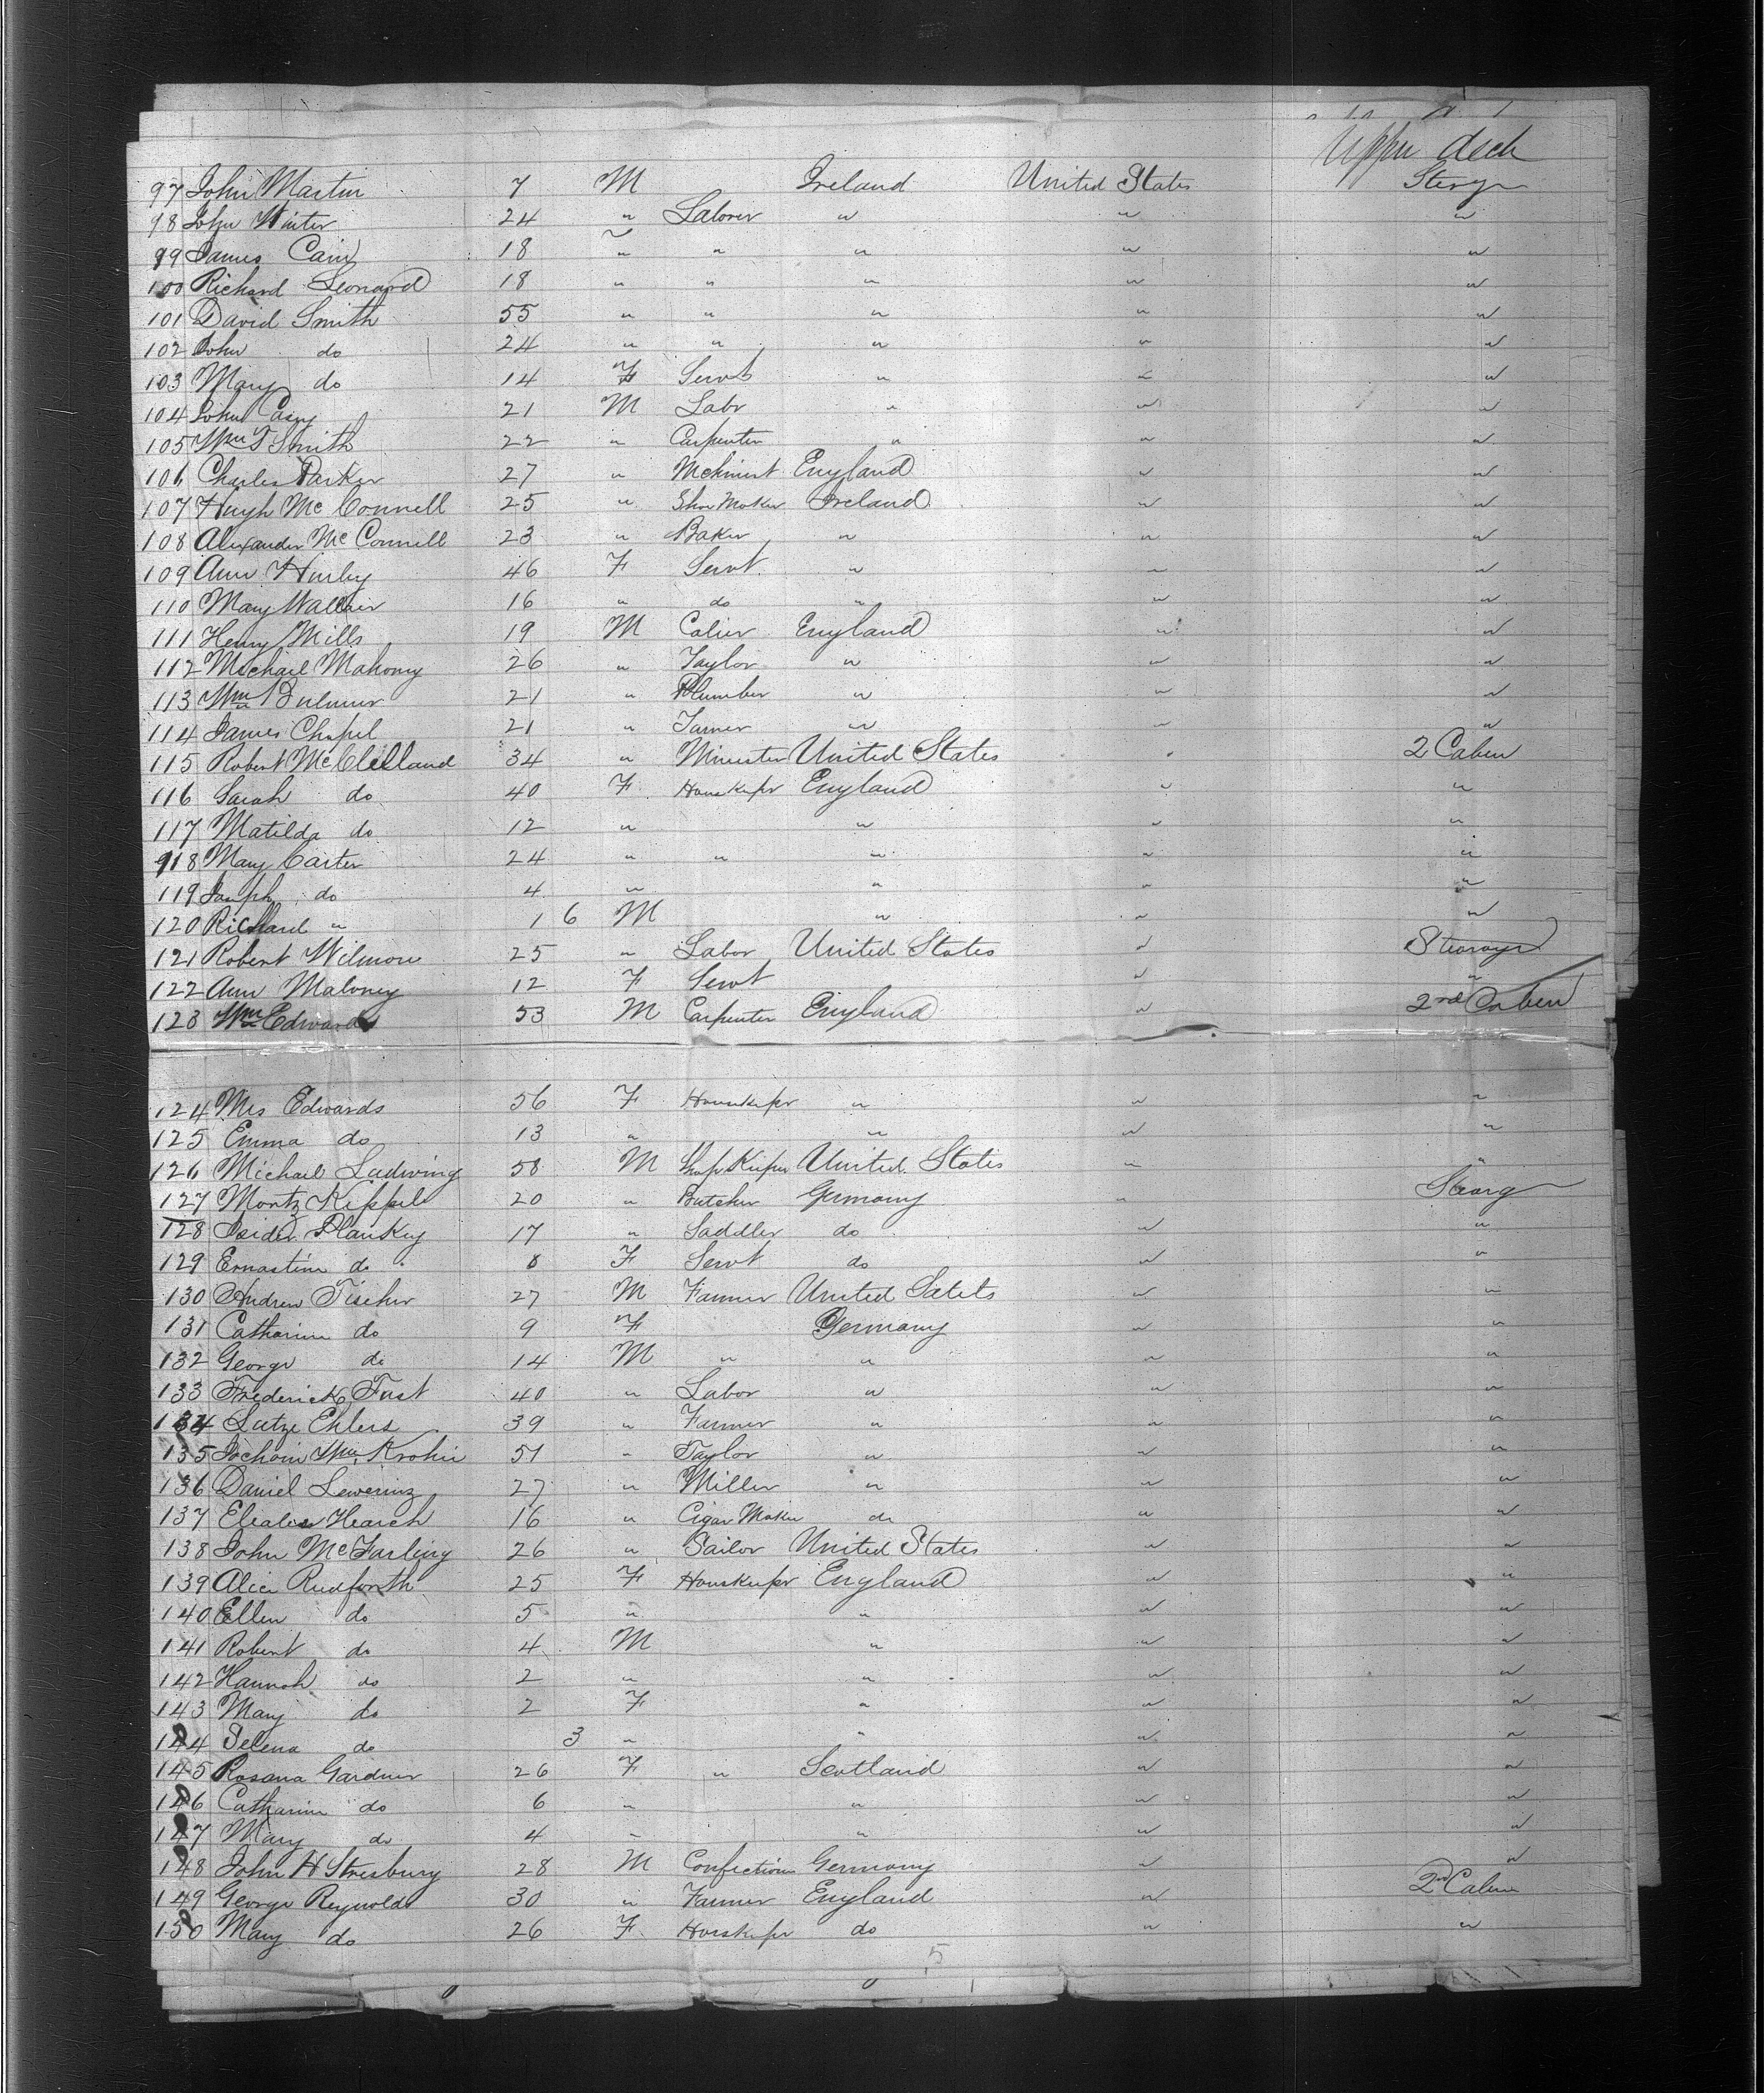 Upper deck
97 John Martin 7 M Ireland United States Sterge
98 John Winter 24 " Laborer " " "
99 James Cain 18 " " " " "
100 Richard Leonard 18 " " " " "
101 David Smith 55 " " " " "
102 John do 24 " " " " "
103 Mary do 14 F Servt " " "
104 John Casey 21 M Labr " " "
105 Wm Smith 22 " Carpenter " " "
106 Charles Parker 27 " England " "
107 Hugh McConnell 25 " Shoe Maker Ireland " "
108 Alexander McConnell 23 " Baker " " "
109 Ann Hurley 46 F Servt " " "
110 Mary 16 " do " " "
111 Henry Mills 19 M Colier England " "
112 Michael Mahony 26 " Taylor " " "
113 Wm 21 " Plumber " " "
114 James Chapel 21 " " " "
115 Robert McClelland 34 " Minister United States " 2 Caben
116 Sarah do 40 F Houskepr England " "
117 Matilda do 12 " " " "
118 Mary Carter 24 " " " " "
119 Joseph do 4 " " " "
120 Richard " 1 6 M " " "
121 Robert Wilmore 25 " Labor United States " Stearage
122 Ann Maloney 12 F Servt " "
123 Wm Edwards 53 M Carpenter England " 2nd Caben
124 Mrs Edwards 56 F Houskepr " " "
125 Emma do 13 " " " "
126 Michael Ludwing 58 M Shop Keeper United States " "
127 Moritz Kippel 20 " Butcher Germany " Stearg
128 Isidor Plansky 17 " Saddler do " "
129 Ernastine do 8 F Servt do " "
130 Andrew Fischer 27 M Farmer United Satets " "
131 Catharine do 9 F Germany " "
132 George do 14 M " " " "
133 Frederick Fust 40 " Labor " " "
134 Lutze Ehlers 39 " Farmer " " "
135 Jochaim Wm Krohn 51 " Taylor " " "
136 Daniel Lewerinz 27 " Miller " " "
137 Hearch 16 " Cigar Maker do " "
138 John McFarling 26 " Sailor United States " "
139 Alice Rudforth 25 F Houskepr England " "
140 Ellen do 5 " " " "
141 Robert do 4 M " " "
142 Hannah do 2 " " " "
143 Mary do 2 F " " "
144 Selena do 3 " " " "
145 Rosana Gardner 26 F " Scotland " "
146 Catharine do 6 " " " "
147 Mary do 4 " " " "
148 John H Stresbury 28 M Confection Germany " "
149 George Reynolds 30 " Farmer England " 2nd Caben
150 Mary do 26 F Houskepr do " "
5